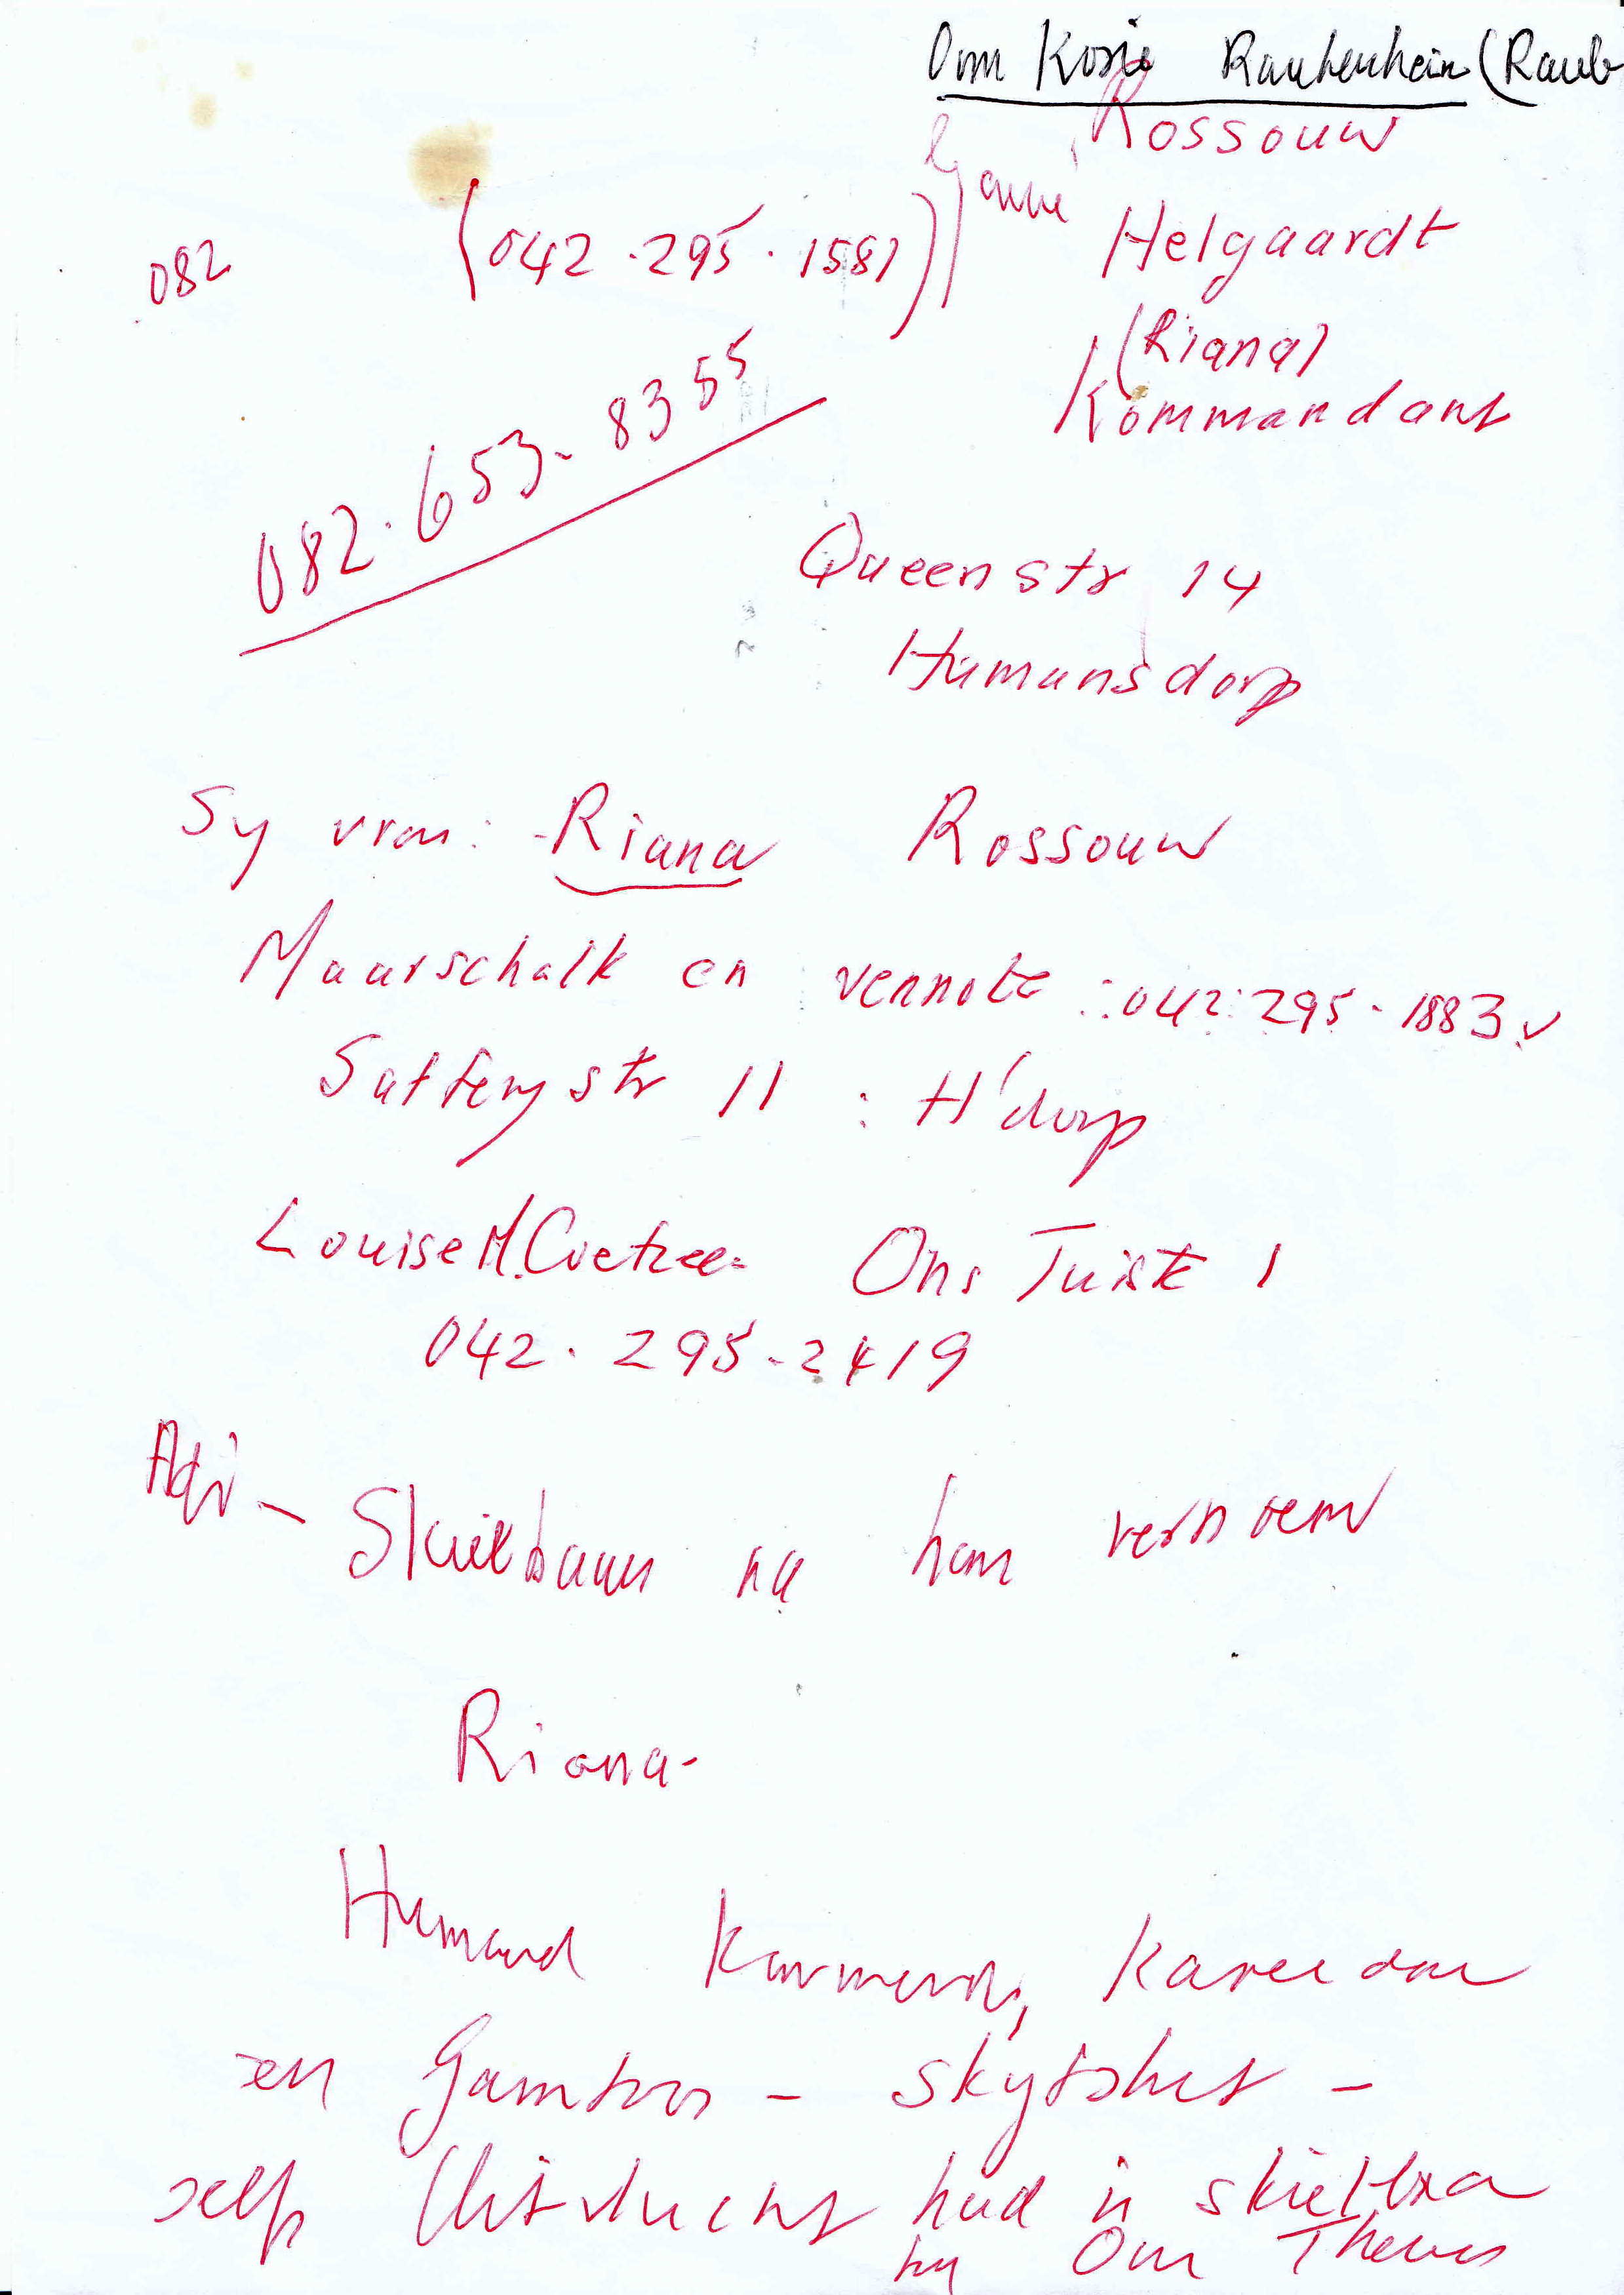 Oom Kosie Raubenhein (Raub
Rossouw
082 (042.295.1581) Helgaardt
(Riana)
Kommandant
082.653-8355
Queenstr 14
Humansdorp
Sy vrou: Riana Rossouw
Maarschalk en vennote: 042:295-1883
str 11 : H'dorp
Louise M. Coetzee Ons Tuiste 1
042.295-2419
Skietbaan na hom vernoem
Riana-
Humansd Karmund, Kareedou
en Gamtoos - skyfskiet -
self Uitvlucht had 'n skietba
by Oom Theuns